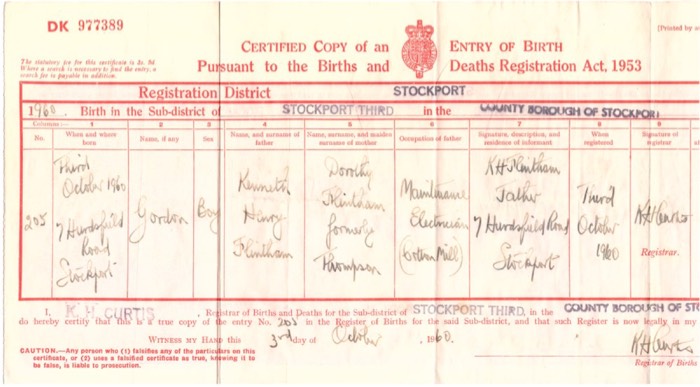 DK 977389
[Printed by
CERTIFIED COPY of an ENTRY OF BIRTH
The statutory fee for this certificate is 3s. 9d.
Where a search is necessary to find the entry, a
search fee is payable in addition.
Pursuant to the Births and Deaths Registration Act, 1953
Registration District STOCKPORT
1960. Birth in the Sub-district of STOCKPORT THIRD in the COUNTY BOROUGH OF STOCKPORT
Columns:— 1 2 3 4 5 6 7 8 9
No. When and where born Name, if any Sex Name, and surname of father Name, surname, and maiden surname of mother Occupation of father Signature, description, and residence of informant When registered Signature of registrar
205
Third
October 1960
7 Hurdsfield
Road
Stockport
Gordon
Boy
Kenneth
Henry
Flintham
Dorothy
Flintham
formerly
Thompson
Maintenance
Electrician
(Cotton Mill)
KH Flintham
Father
7 Hurdsfield Road
Stockport
Third
October
1960
KH Curtis
Registrar.
I, K. H. CURTIS, Registrar of Births and Deaths for the Sub-district of STOCKPORT THIRD, in the COUNTY BOROUGH OF STO
do hereby certify that this is a true copy of the entry No. 205 in the Register of Births for the said Sub-district, and that such Register is now legally in my
WITNESS MY HAND this 3rd day of October, 1960.
CAUTION.—Any person who (1) falsifies any of the particulars on this
certificate, or (2) uses a falsified certificate as true, knowing it to
be false, is liable to prosecution.
KH Curtis
Registrar of Births